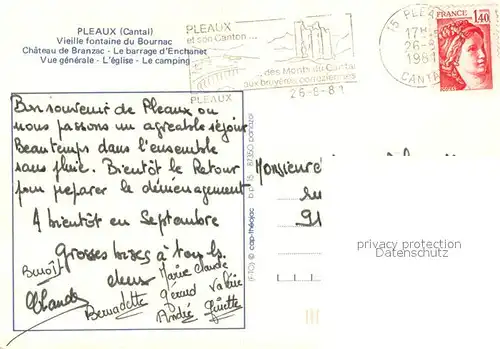 PLEAUX (Cantal)
Vieille fontaine du Bournac
Château de Branzac - Le barrage d'Enchanet
Vue générale - L'église - Le camping
PLEAUX
et son Canton...
...des Monts du Cantal
aux bruyères corréziennes
PLEAUX
26-8-81
15 PLEA
17H
26-8
1981
CANTA
1,40
Bon souvenir de Pleaux ou
nous passons un agreable séjour
Beautemps dans l'ensemble
sans pluie. Bientôt le Retour
pour preparer le déménagement
A bientôt en Septembre
Grosses bises à tous les
deux
Benoît
Claude
Bernadette
Marie Claude
Gérard Valérie
André Ginette
(FTO) © cap-théojac
Monsieur
91
privacy protection
Datenschutz